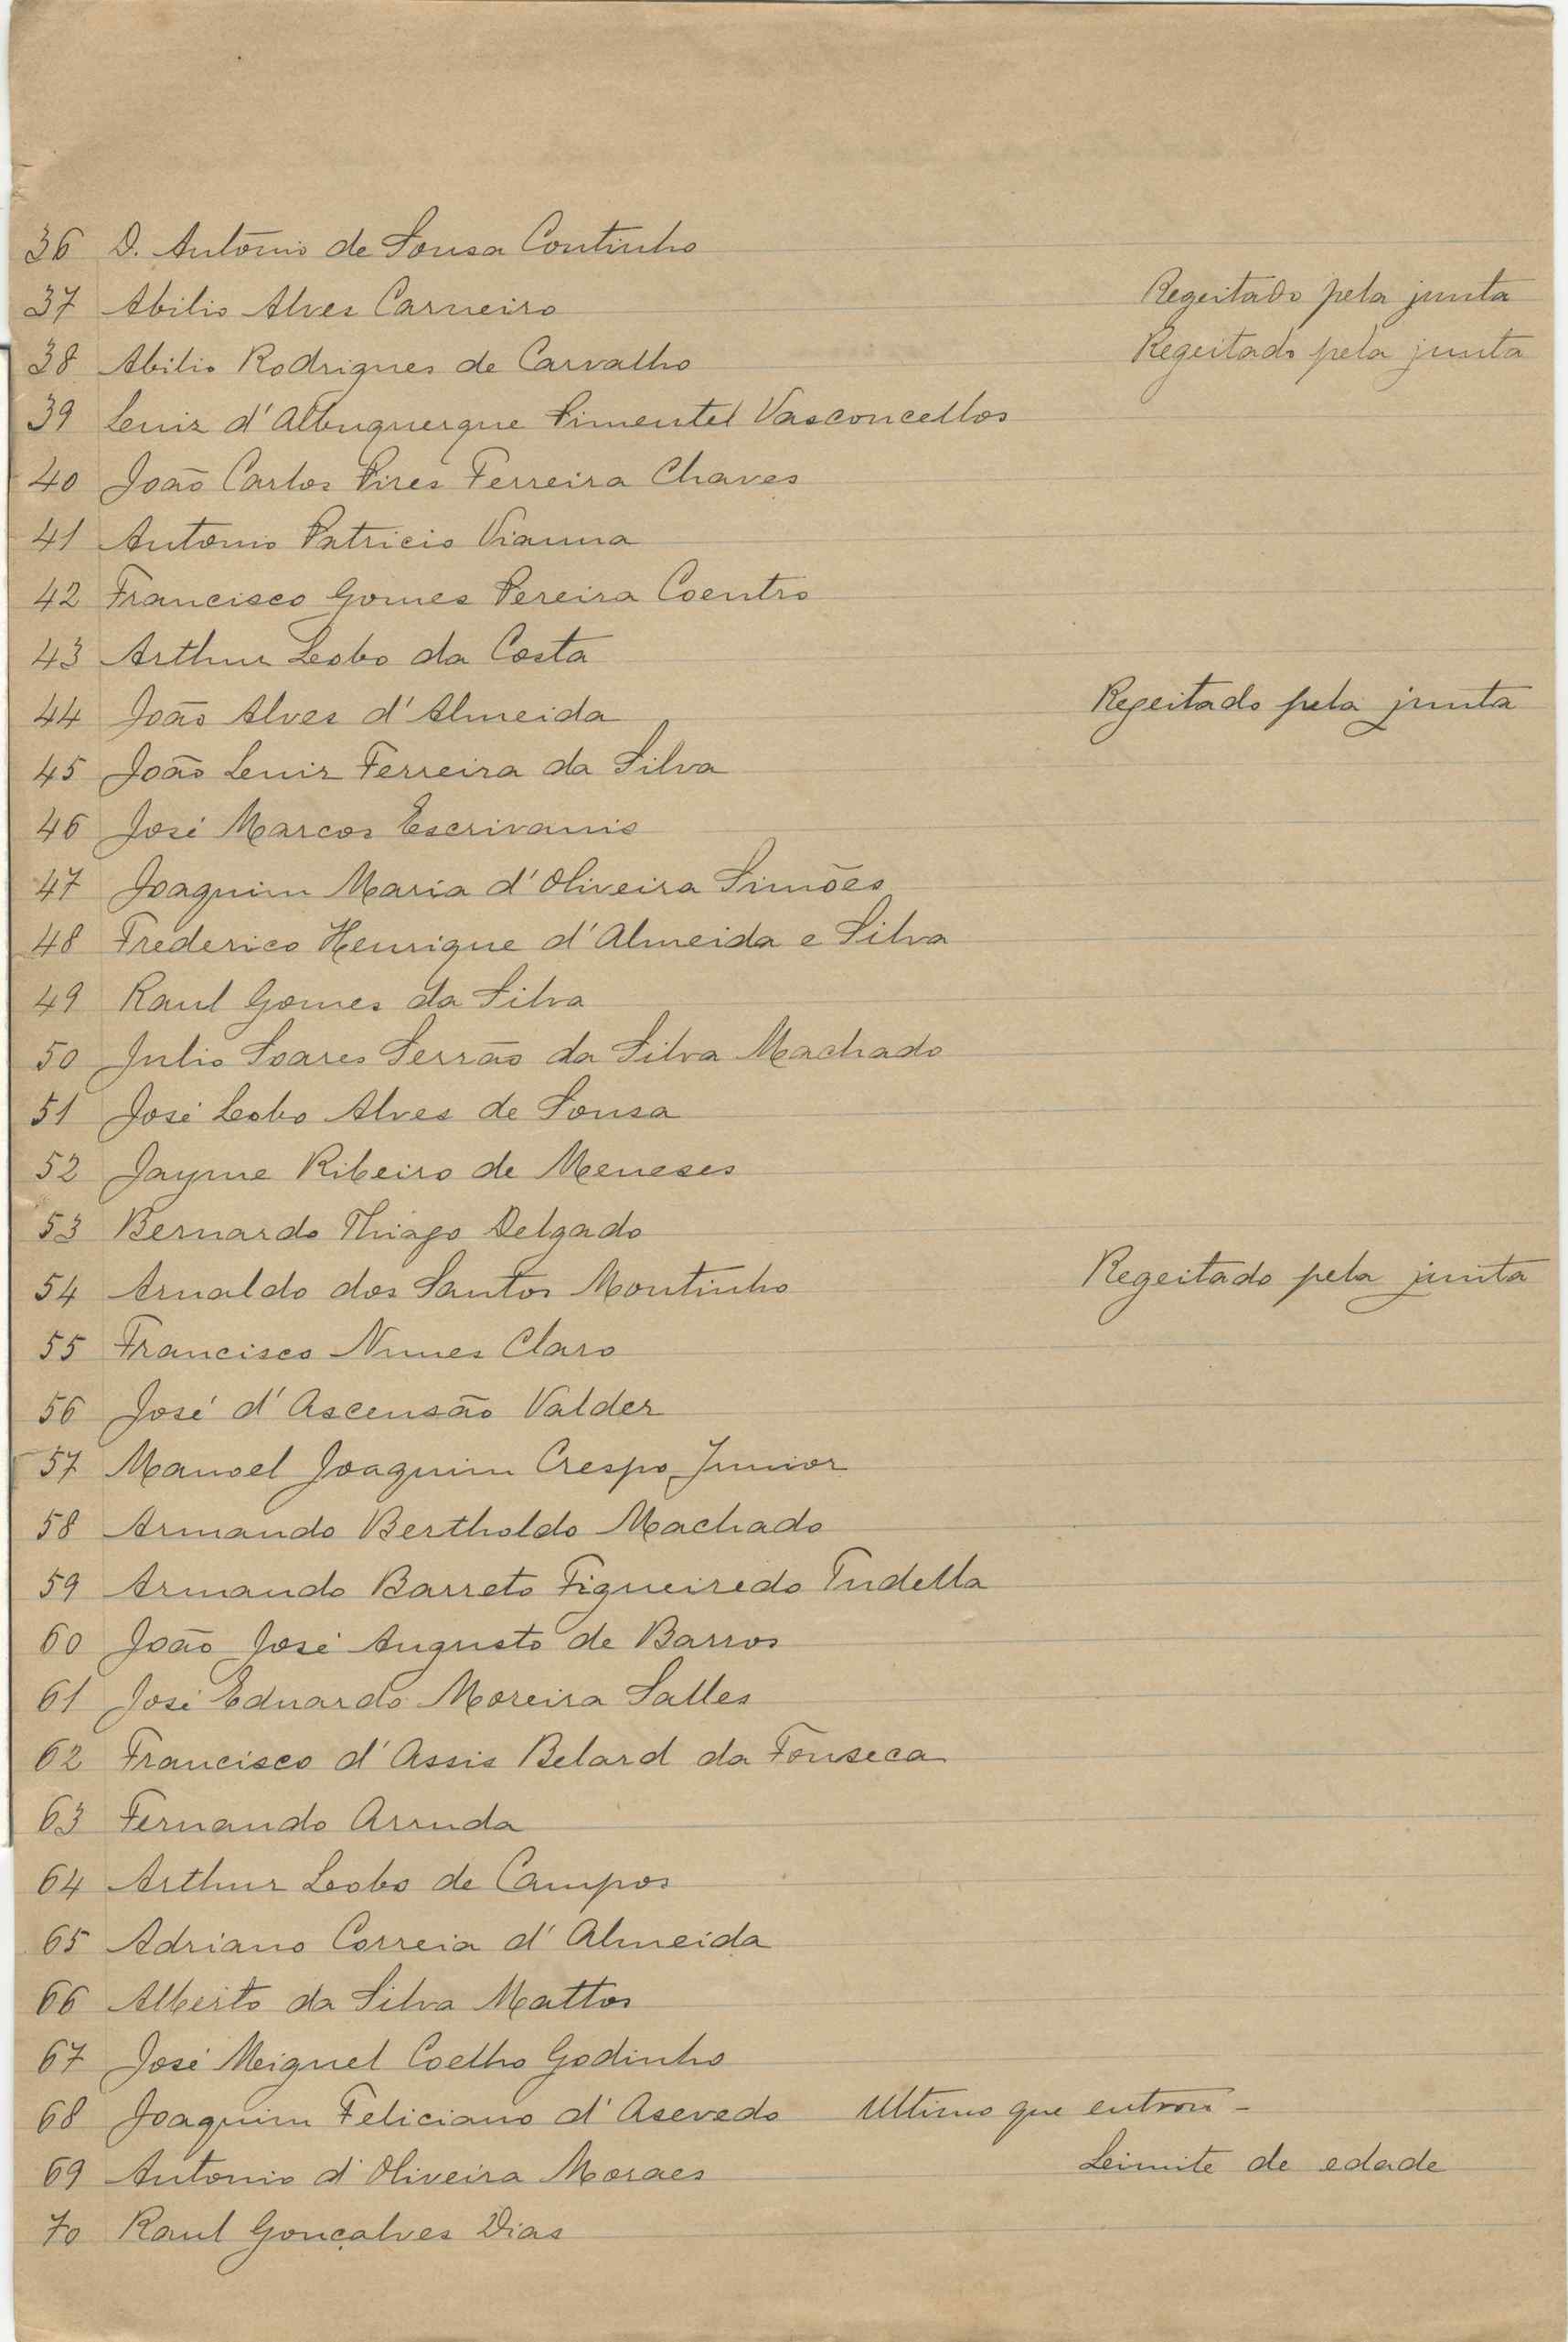 36 D. António de Sousa Coutinho
37 Abilio Alves Carneiro Regeitado pela junta
38 Abilio Rodrigues de Carvalho Regeitado pela junta
39 Luiz d'Albuquerque Pimentel Vasconcellos
40 João Carlos Pires Ferreira Chaves
41 Antonio Patricio Vianna
42 Francisco Gomes Pereira Coentro
43 Arthur Lobo da Costa
44 João Alves d'Almeida Regeitado pela junta
45 João Luiz Ferreira da Silva
46 José Marcos Escrivanis
47 Joaquim Maria d'Oliveira Simões
48 Frederico Henrique d'Almeida e Silva
49 Raul Gomes da Silva
50 Julio Soares Serrão da Silva Machado
51 José Lobo Alves de Sousa
52 Jayme Ribeiro de Meneses
53 Bernardo Thiago Delgado
54 Arnaldo dos Santos Moutinho Regeitado pela junta
55 Francisco Nunes Claro
56 José d'Ascensão Valdez
57 Manoel Joaquim Crespo Junior
58 Armando Bertholdo Machado
59 Armando Barreto Figueiredo Tudella
60 João José Augusto de Barros
61 José Eduardo Moreira Salles
62 Francisco d'Assis Belard da Fonseca
63 Fernando Arruda
64 Arthur Lobo de Campos
65 Adriano Correia d'Almeida
66 Alberto da Silva Mattos
67 José Miguel Coelho Godinho
68 Joaquim Feliciano d'Asevedo Ultimo que entrou -
69 Antonio d'Oliveira Moraes Limite de edade
70 Raul Gonçalves Dias